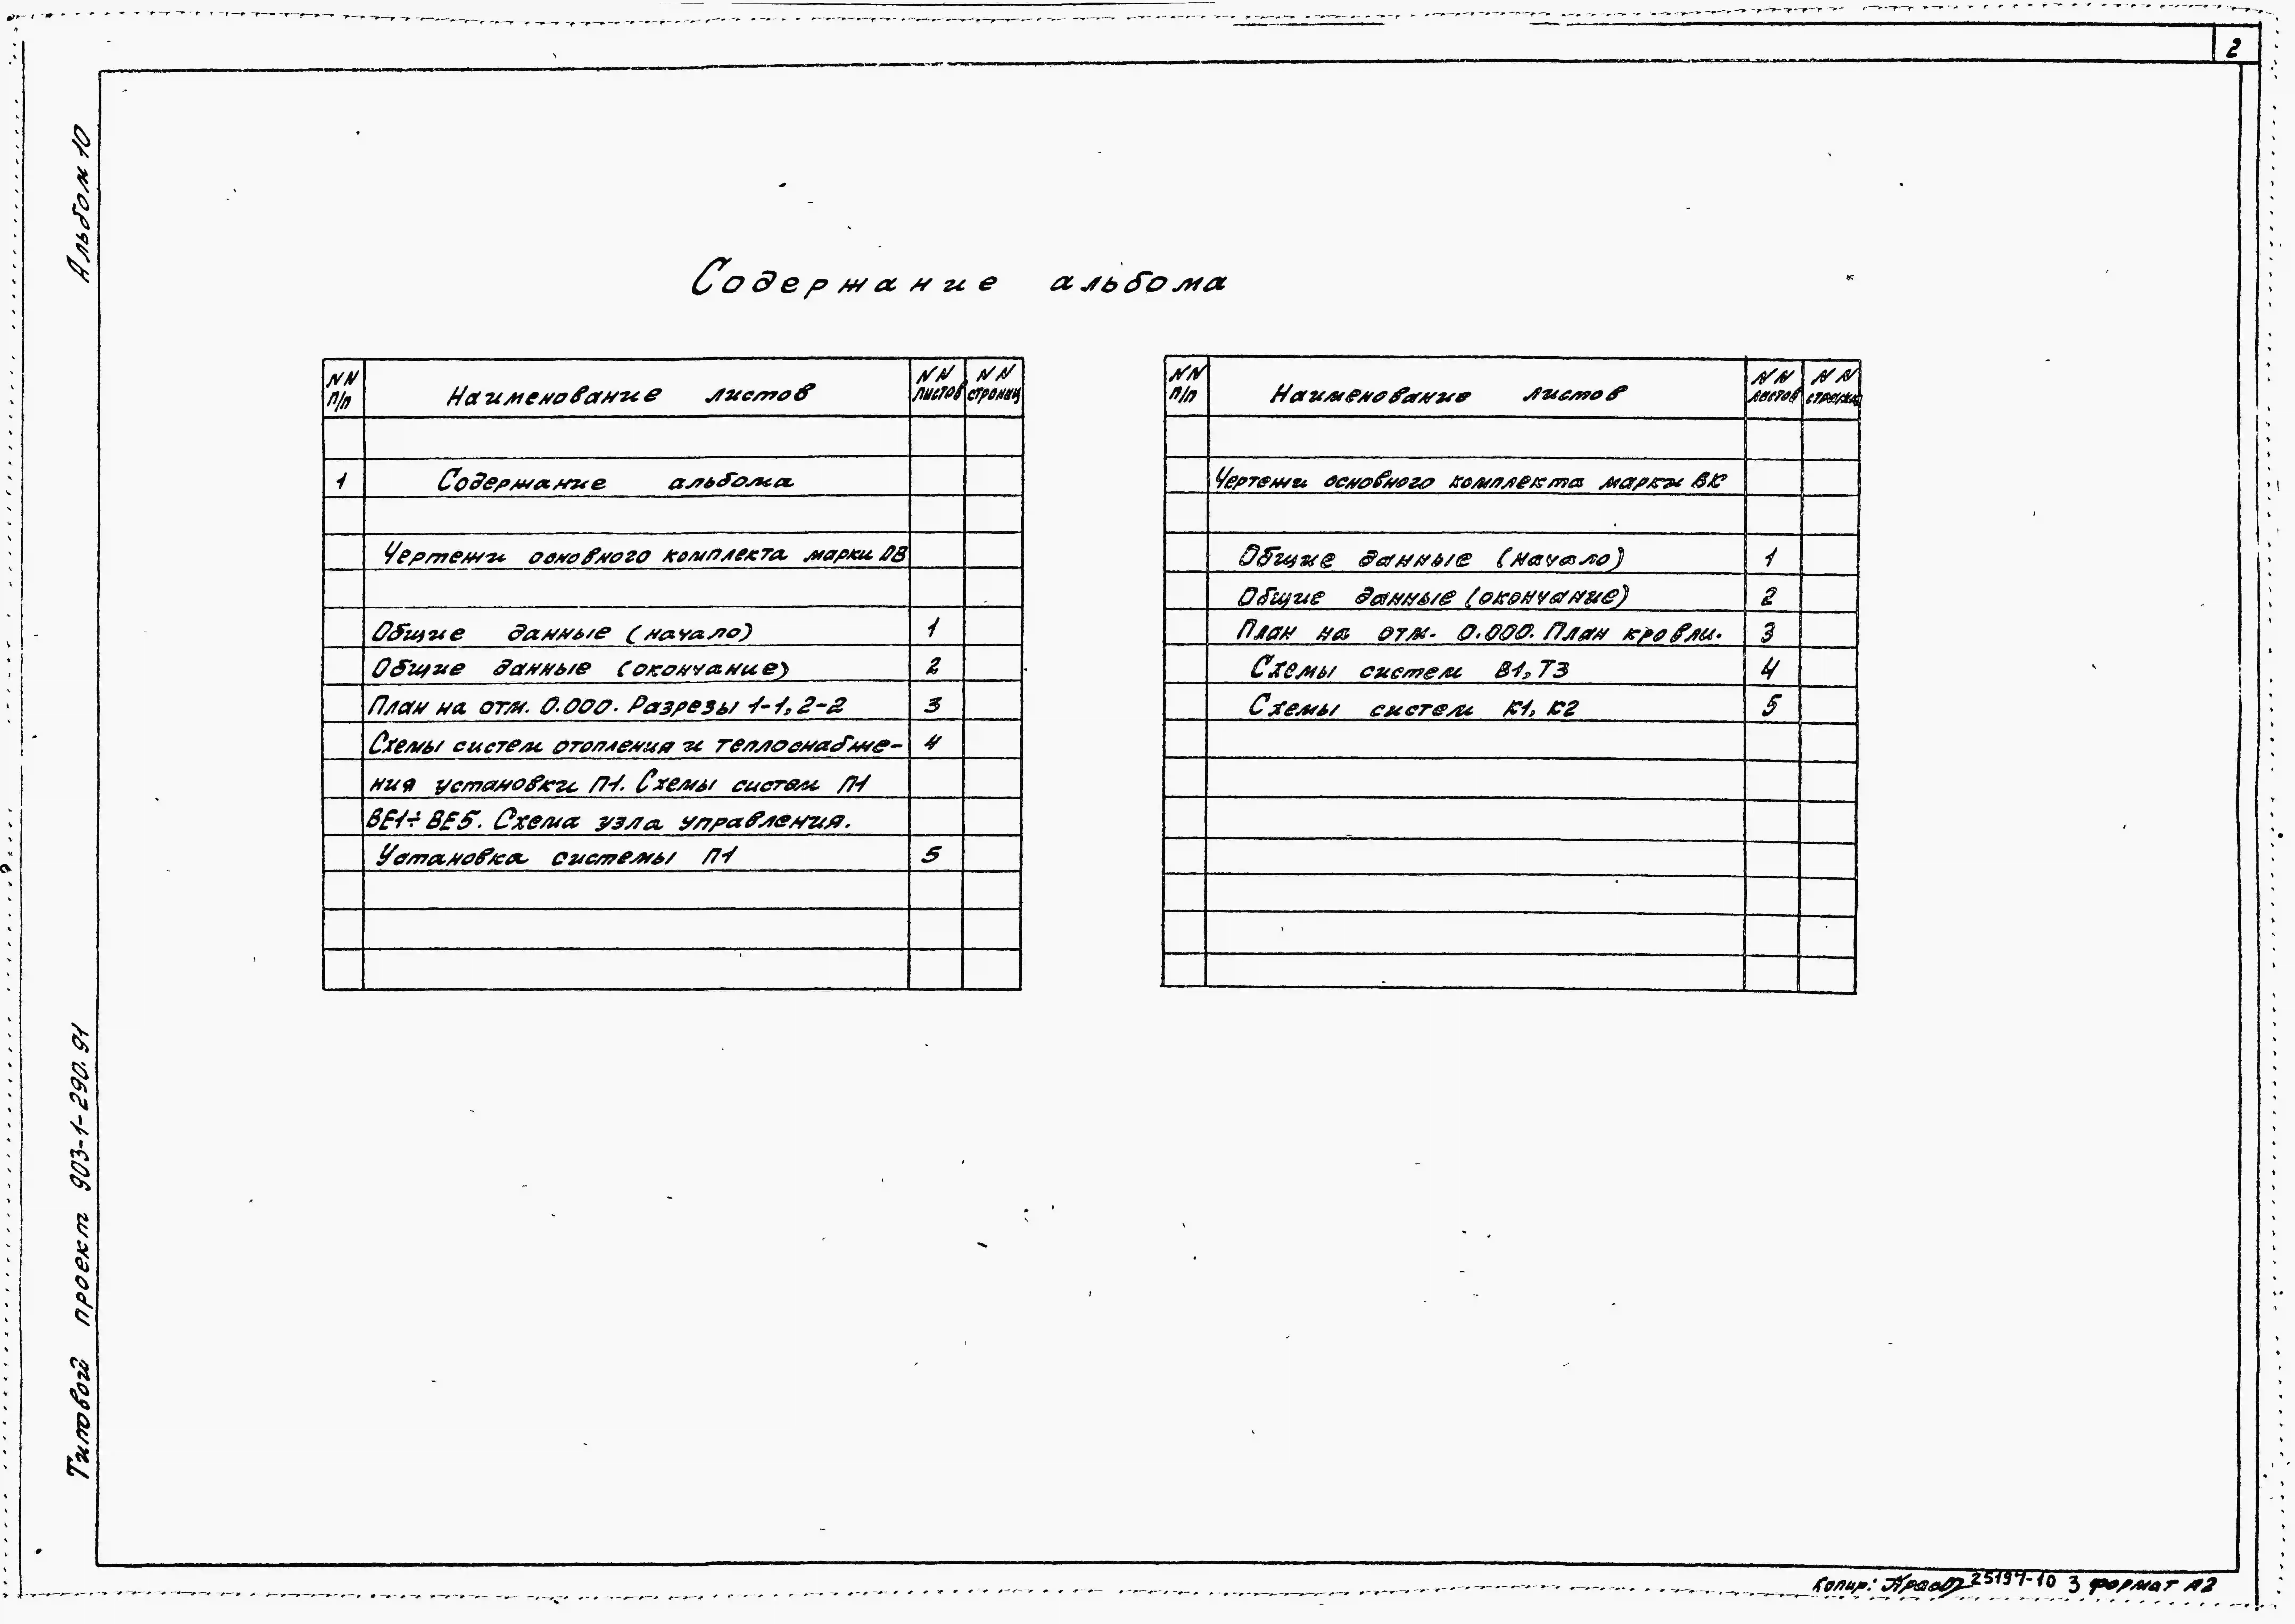 2
Альбом 10
Содержание альбома
NN п/п Наименование листов NN листов NN страниц
1 Содержание альбома
Чертежи основного комплекта марки ОВ
Общие данные (начало) 1
Общие данные (окончание) 2
План на отм. 0.000. Разрезы 1-1, 2-2 3
Схемы систем отопления и теплоснабже- 4
ния установки П1. Схемы систем П1
ВЕ1÷ВЕ5. Схема узла управления.
Установка системы П1 5
NN п/п Наименование листов NN листов NN страниц
Чертежи основного комплекта марки ВК
Общие данные (начало) 1
Общие данные (окончание) 2
План на отм. 0.000. План кровли. 3
Схемы систем В1, Т3 4
Схемы систем К1, К2 5
Типовой проект 903-1-290.91
Копир: 25197-10 3 формат А2